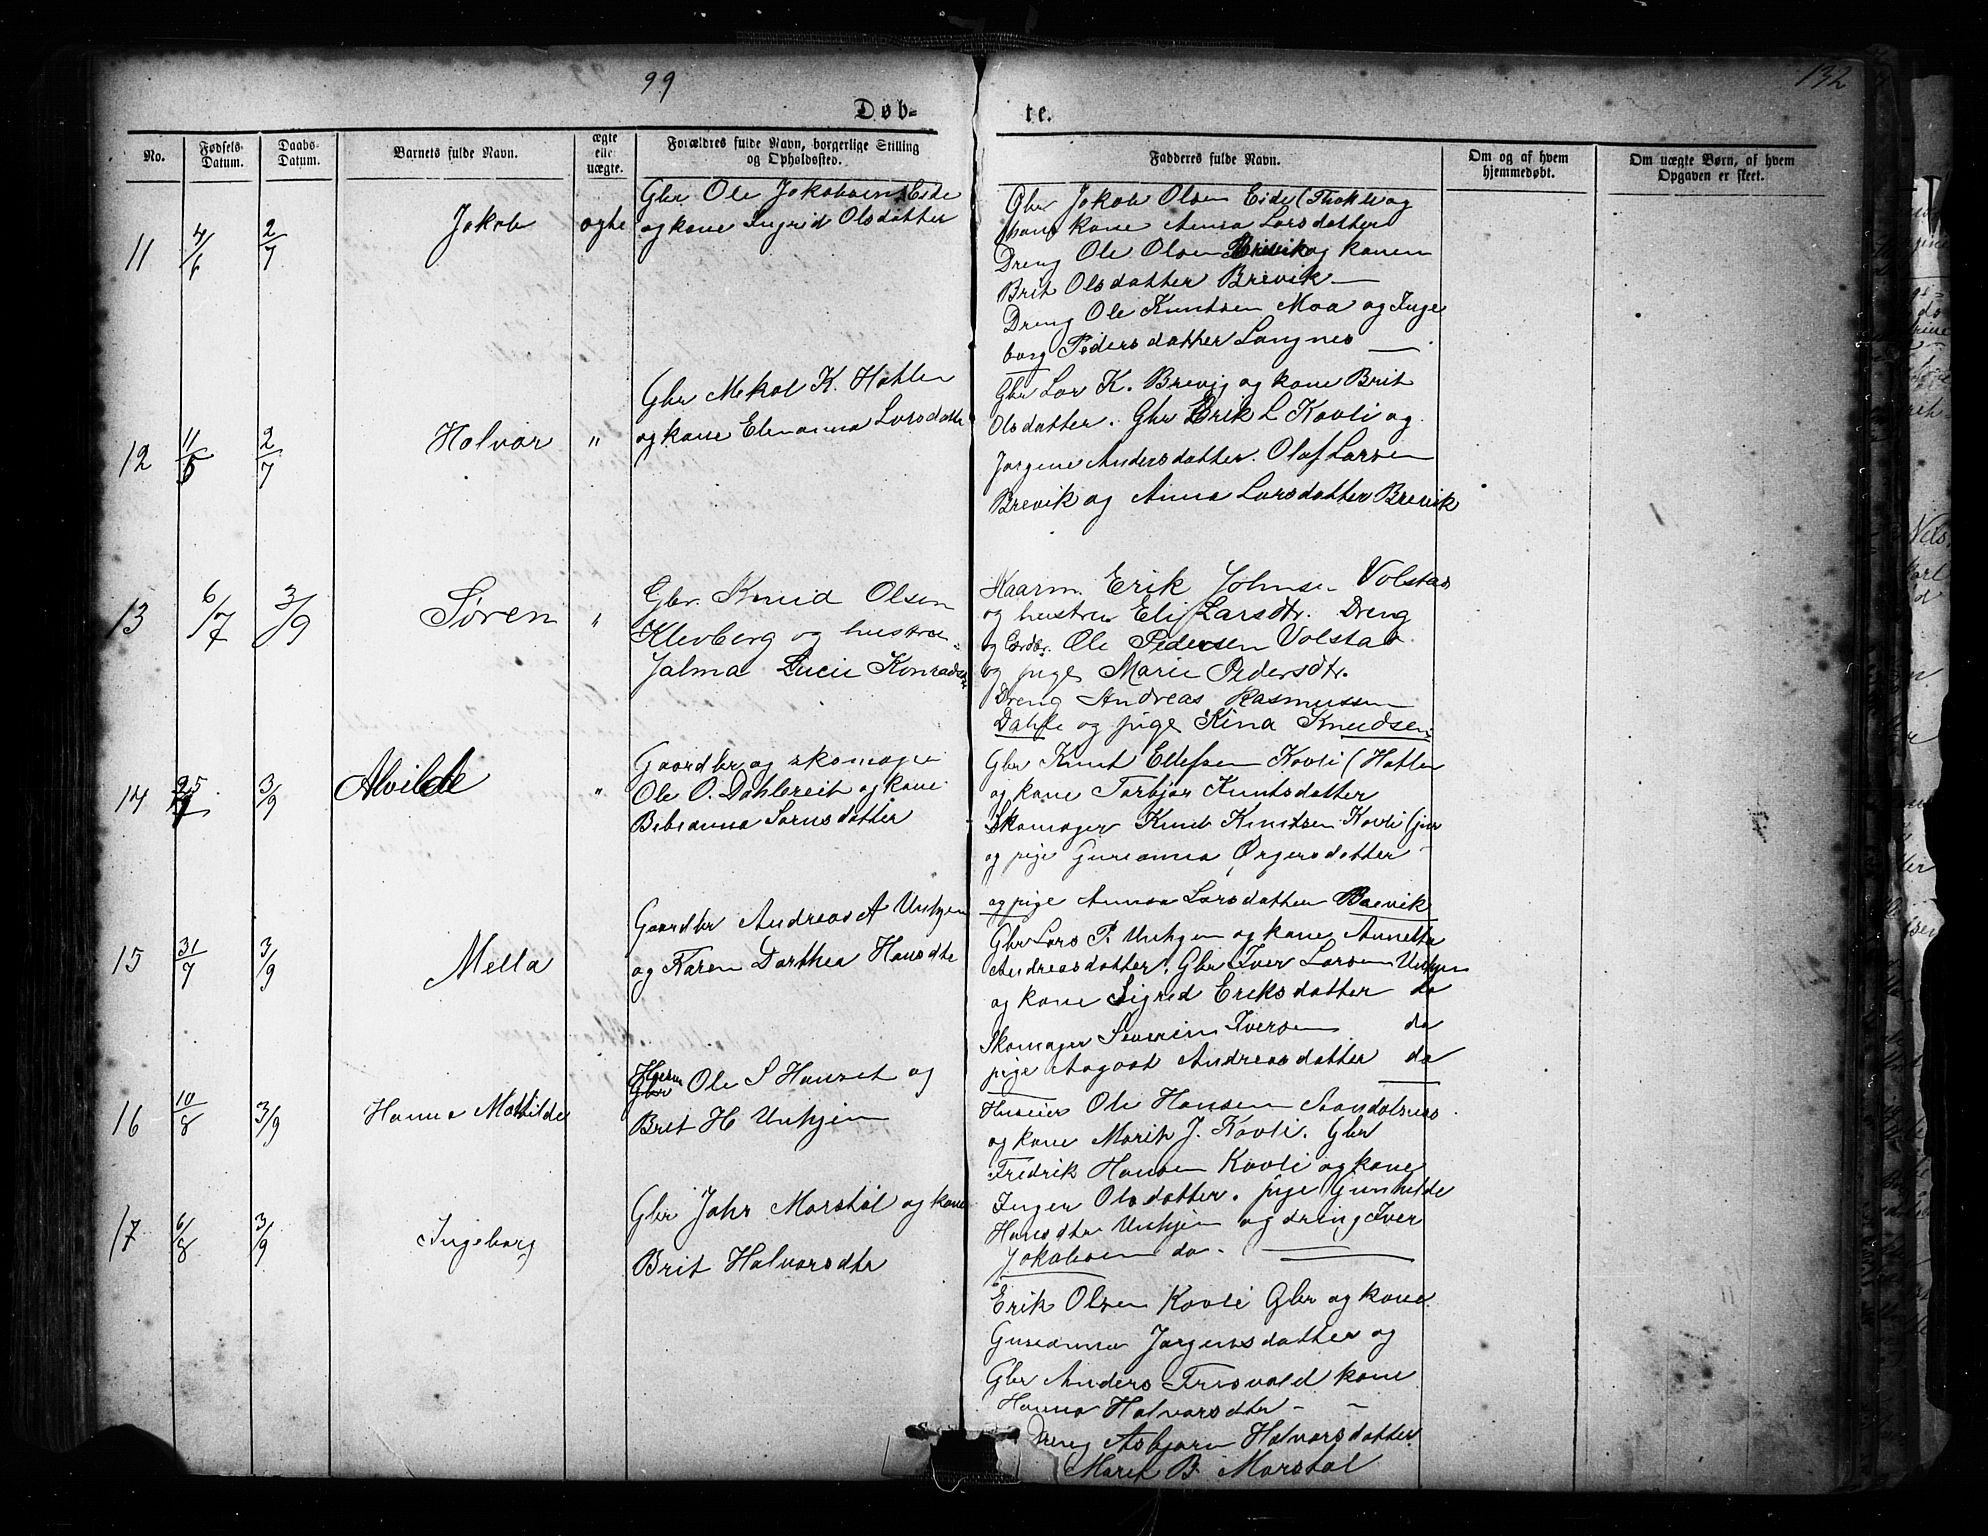 99
132
Døb-
te.
No.
Fødsels-
Datum.
Daabs-
Datum.
Barnets fulde Navn.
ægte
elle
uægte.
Forældres fulde Navn, borgerlige Stilling
og Opholdssted.
Faddere​s fulde Navn.
Om og af hvem
hjemmedøbt.
Om uægte Børn, af hvem
Opgaven er skeet.
11
4/6
2/7
Jakob
ægte
Gbr Ole Jakobsen Eide
og kone Ingrid Olsdatter
Gbr Jakob Olsen Eide (Thokle og
hans kone Anna Larsdatter
Dreng Ole Olsen Brevik og konen
Brit Olsdatter Brevik —
Dreng Ole Knutsen Moa og Inge
borg Pedersdatter Langnes —
12
11/5
2/7
Halvor
"
Gbr Mekal K. Hatlen
og kone Elenanna Larsdatter
Gbr Lar K. Brevig og kone Brit
Olsdatter. Gbr Erik L Kavli og
Jørgine Andersdatter. Olaf Larsen
Brevik og Anna Larsdatter Brevik
13
6/7
3/9
Søren
"
Gbr. Knud Olsen
Klevberg og hustru
Jalma Lucie Konrads
Kaarm. Erik Johnse Volstad
og hustru Eli Larsdtr. Dreng
og Ole Pedersen Volstad
og pige Marie Pedersdtr.
Dreng Andreas Rasmussen
Dahle og pige Stina Knudsen
14
25/7
3/9
Alvilde
"
Gaardbr og skomager
Ole O. Dahlsreit og kone
Bibianna Sørnsdatter
Gbr Knut Ellefsen Kavli (Hatlen
og kone Torbjør Knutsdatter
Skomager Knut Knutsen Kavli (jur
og pige Gurianna Ørgersdatter
og pige Anna Larsdatter Brevik
15
31/7
3/9
Mella
Gaardbr Andreas A Unhjem
og Karen Dorthea Hansdtr
Gbr Lars P. Unhjem og kone Annetta
Andreasdatter. Gbr Iver Larsen Unhjem
og kone Sigrid Eriksdatter do
Skomager Severin Iversen do
pige Aagaat Andreasdatter do
16
10/8
3/9
Hanna Mathilde
Gbr Ole S Hanset og
Brit H Unhjem
Huseier Ole Hansen Aandalsnes
og kone Marit J. Kavli. Gbr
Fredrik Hansen Kavli og kone
Inger Olsdatter. pige Gunhilde
Hansdtr Unhjem og dreng Iver
Jakobsen do. —
17
6/8
3/9
Ingeborg
Gbr Jahr Marstøl og kone
Brit Halvorsdtr
Erik Olsen Kavli Gbr og kone
Gurianna Jørgensdatter og
Gbr Anders Frisvold kone
Hanna Halvorsdtr - -
Dreng Asbjørn Halvorsdatter
Marit B. Marstøl